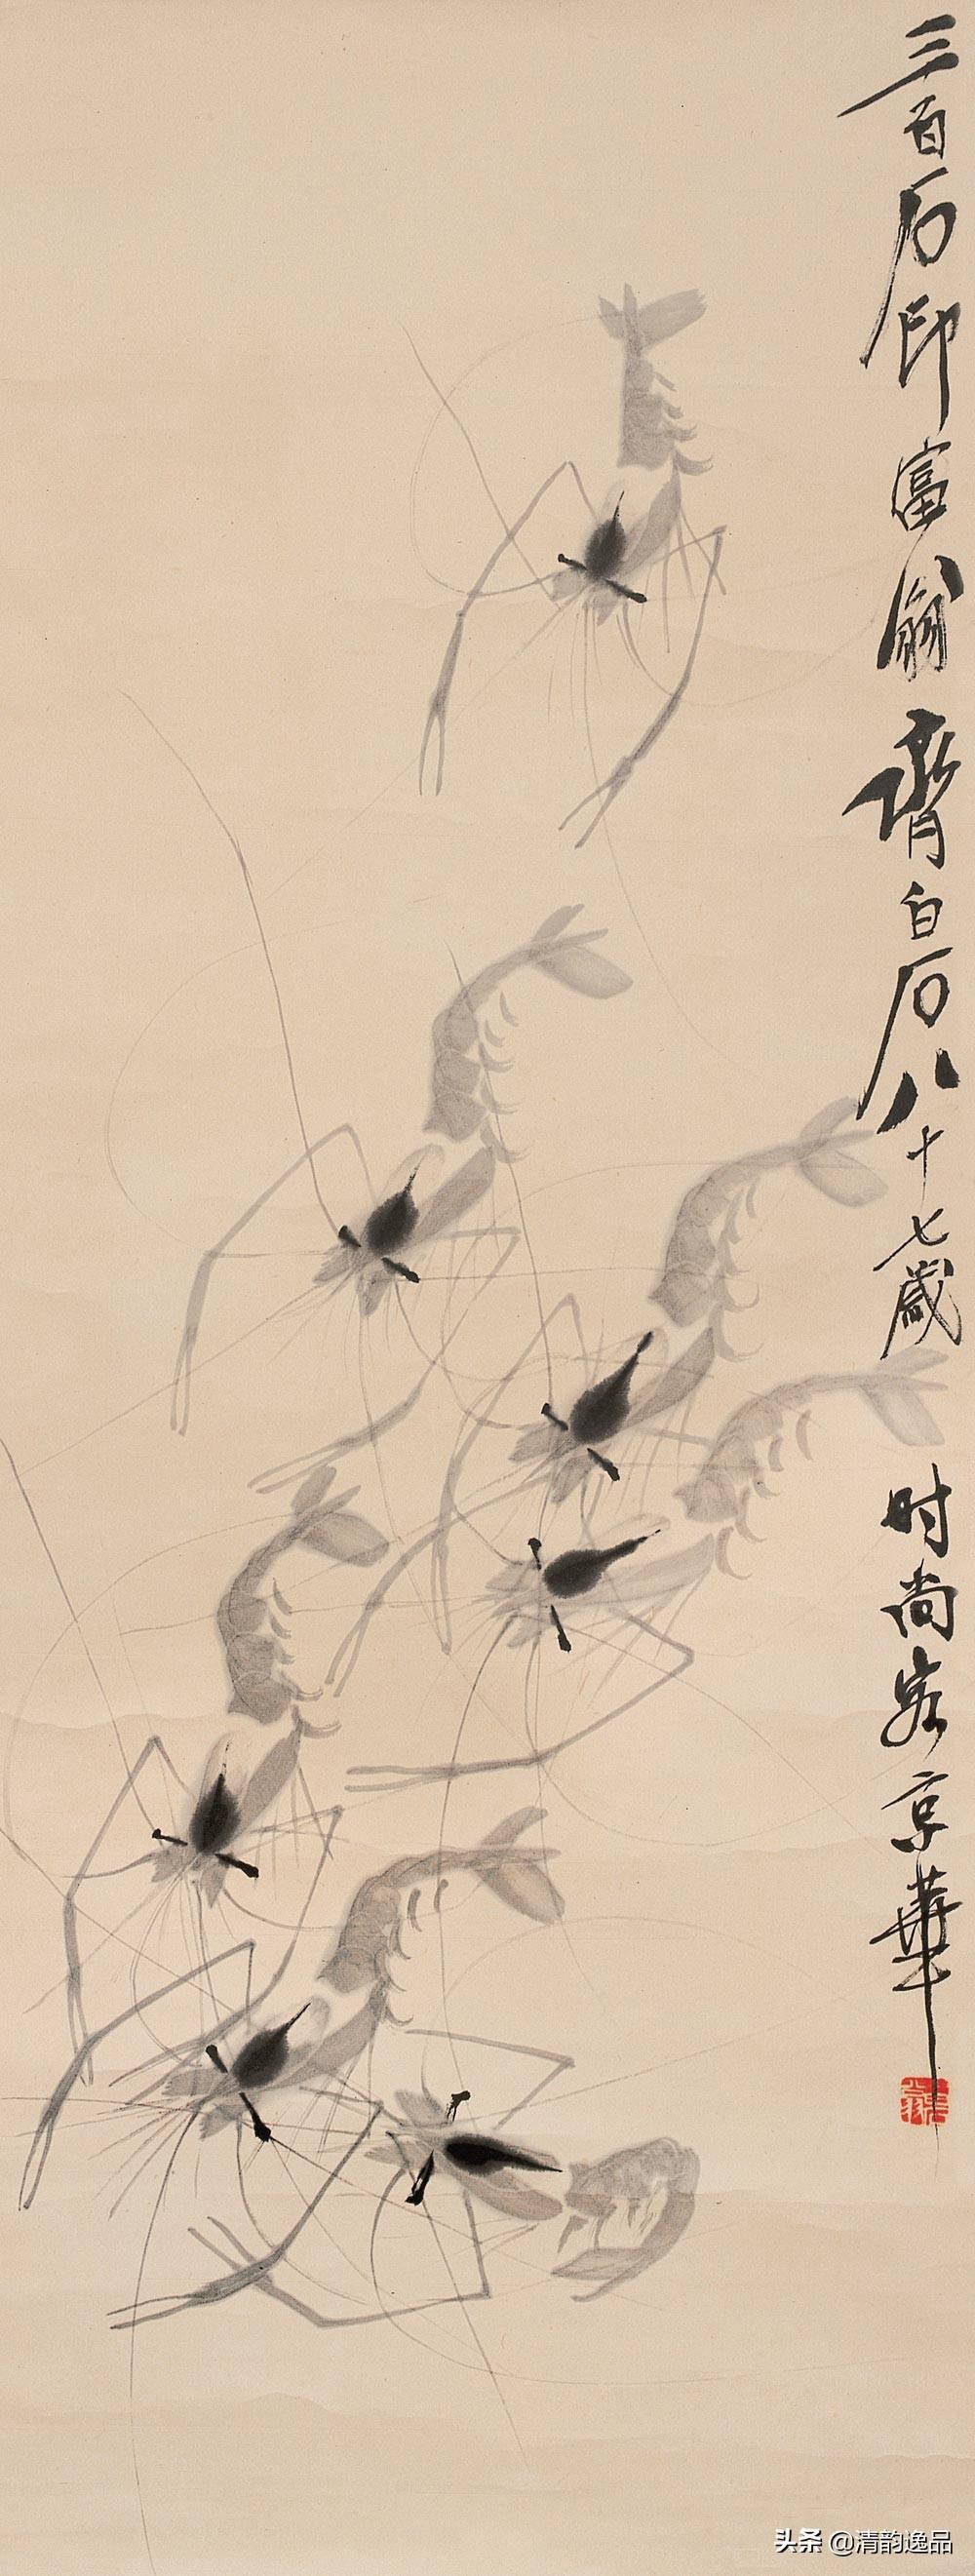 三百石印富翁齊白石八十七歲时尚客京華
头条 @清韵逸品